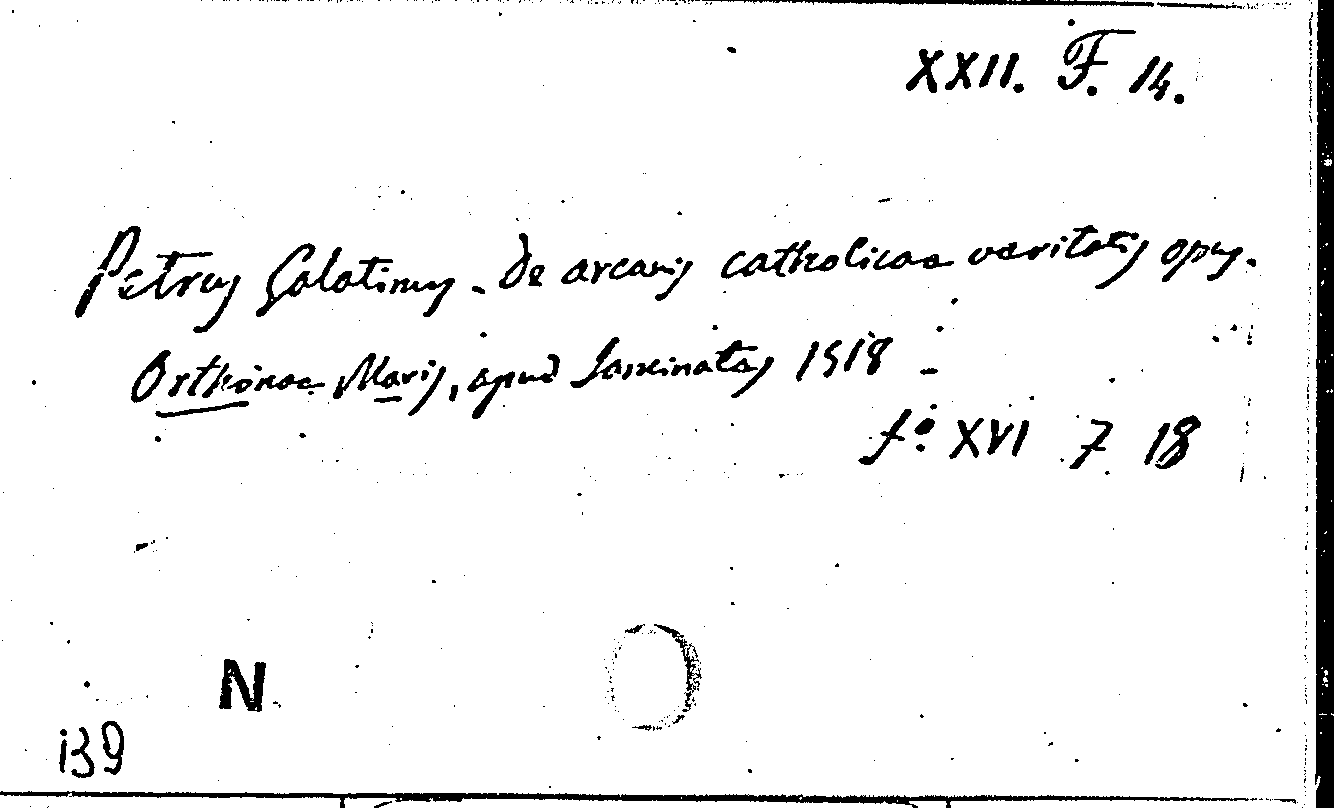 XXII. F. 14.
Petrus Galatinus. De arcanis catholicae veritatis opus.
Orthonae Maris, apud Soncinatas 1518
f.º XVI 7 18
N
i39